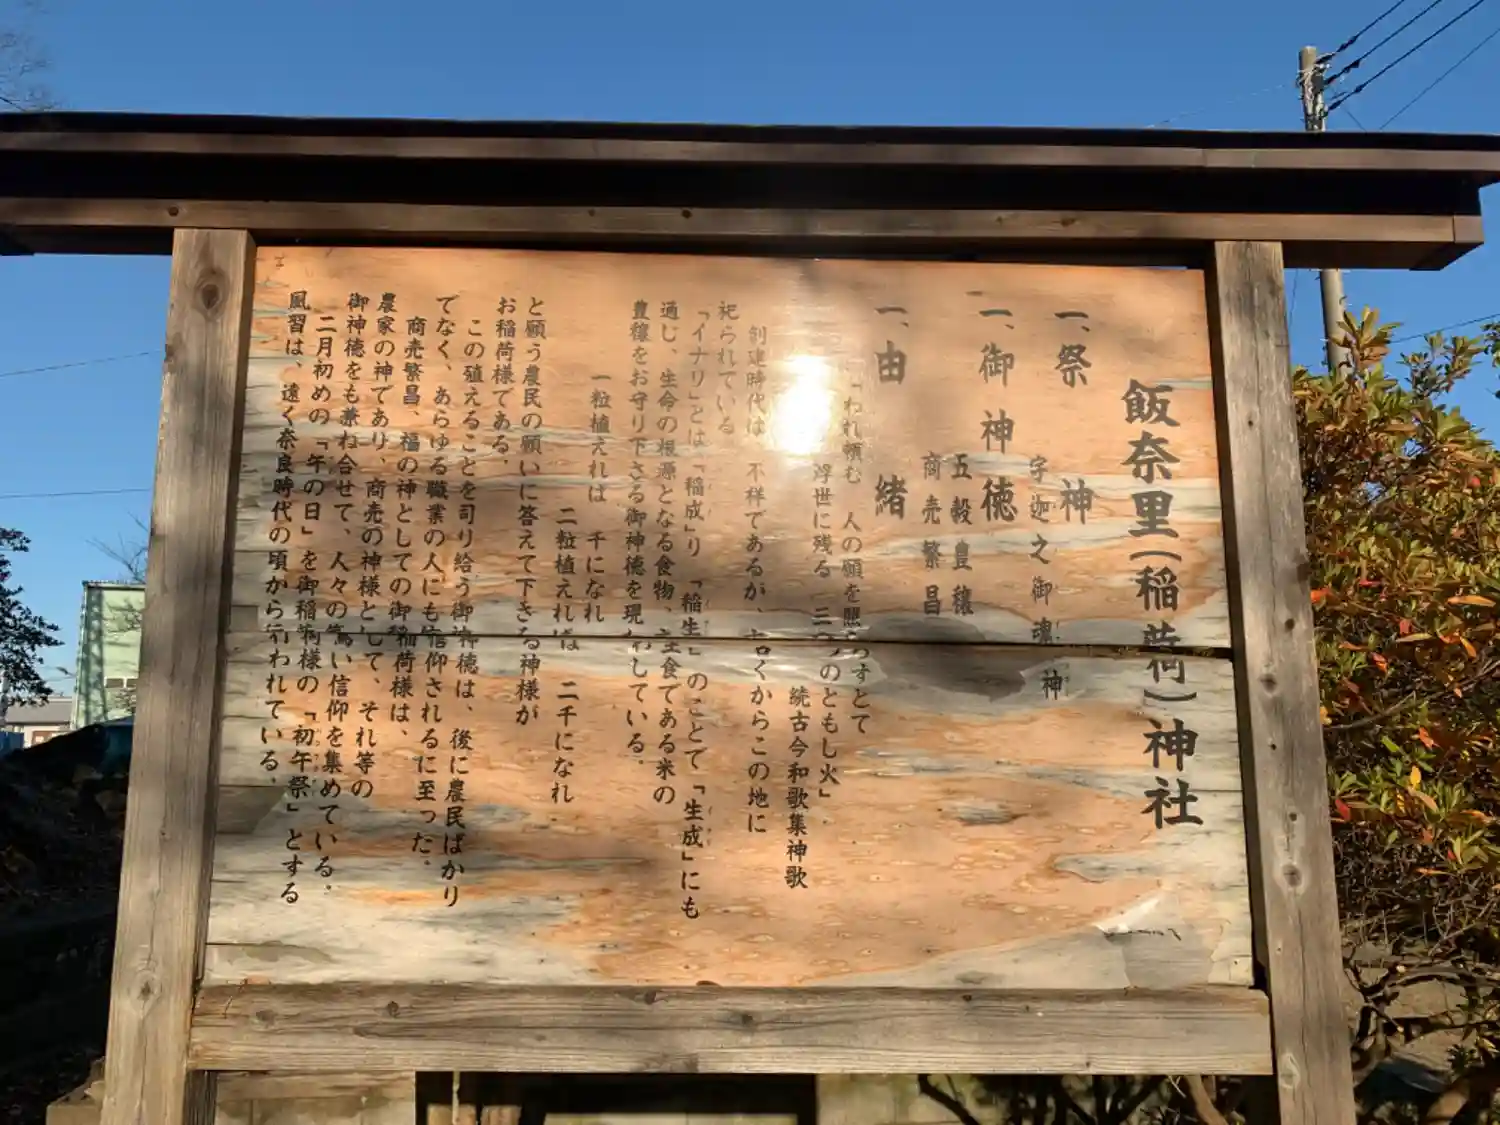 飯奈里(稲荷)神社
一、祭神
宇迦之御魂神
一、御神徳
五穀豊穣
商売繁昌
一、由緒
「われ頼む 人の願を照らすとて
浮世に残る 三つのともし火」
続古今和歌集神歌
創建時代は、不祥であるが、古くからこの地に
祀られている
「イナリ」とは「稲成」り「稲生」のことで「生成」にも
通じ、生命の根源となる食物、主食である米の
豊穣をお守り下さる御神徳を現わしている。
一粒植えれば 千になれ
二粒植えれば 二千になれ
と願う農民の願いに答えて下さる神様が
お稲荷様である。
この殖えることを司り給う御神徳は、後に農民ばかり
でなく、あらゆる職業の人にも信仰されるに至った。
商売繁昌、福の神としての御稲荷様は、
農家の神であり、商売の神様として、それ等の
御神徳をも兼ね合せて、人々の篤い信仰を集めている。
二月初めの「午の日」を御稲荷様の「初午祭」とする
風習は、遠く奈良時代の頃から行われている。